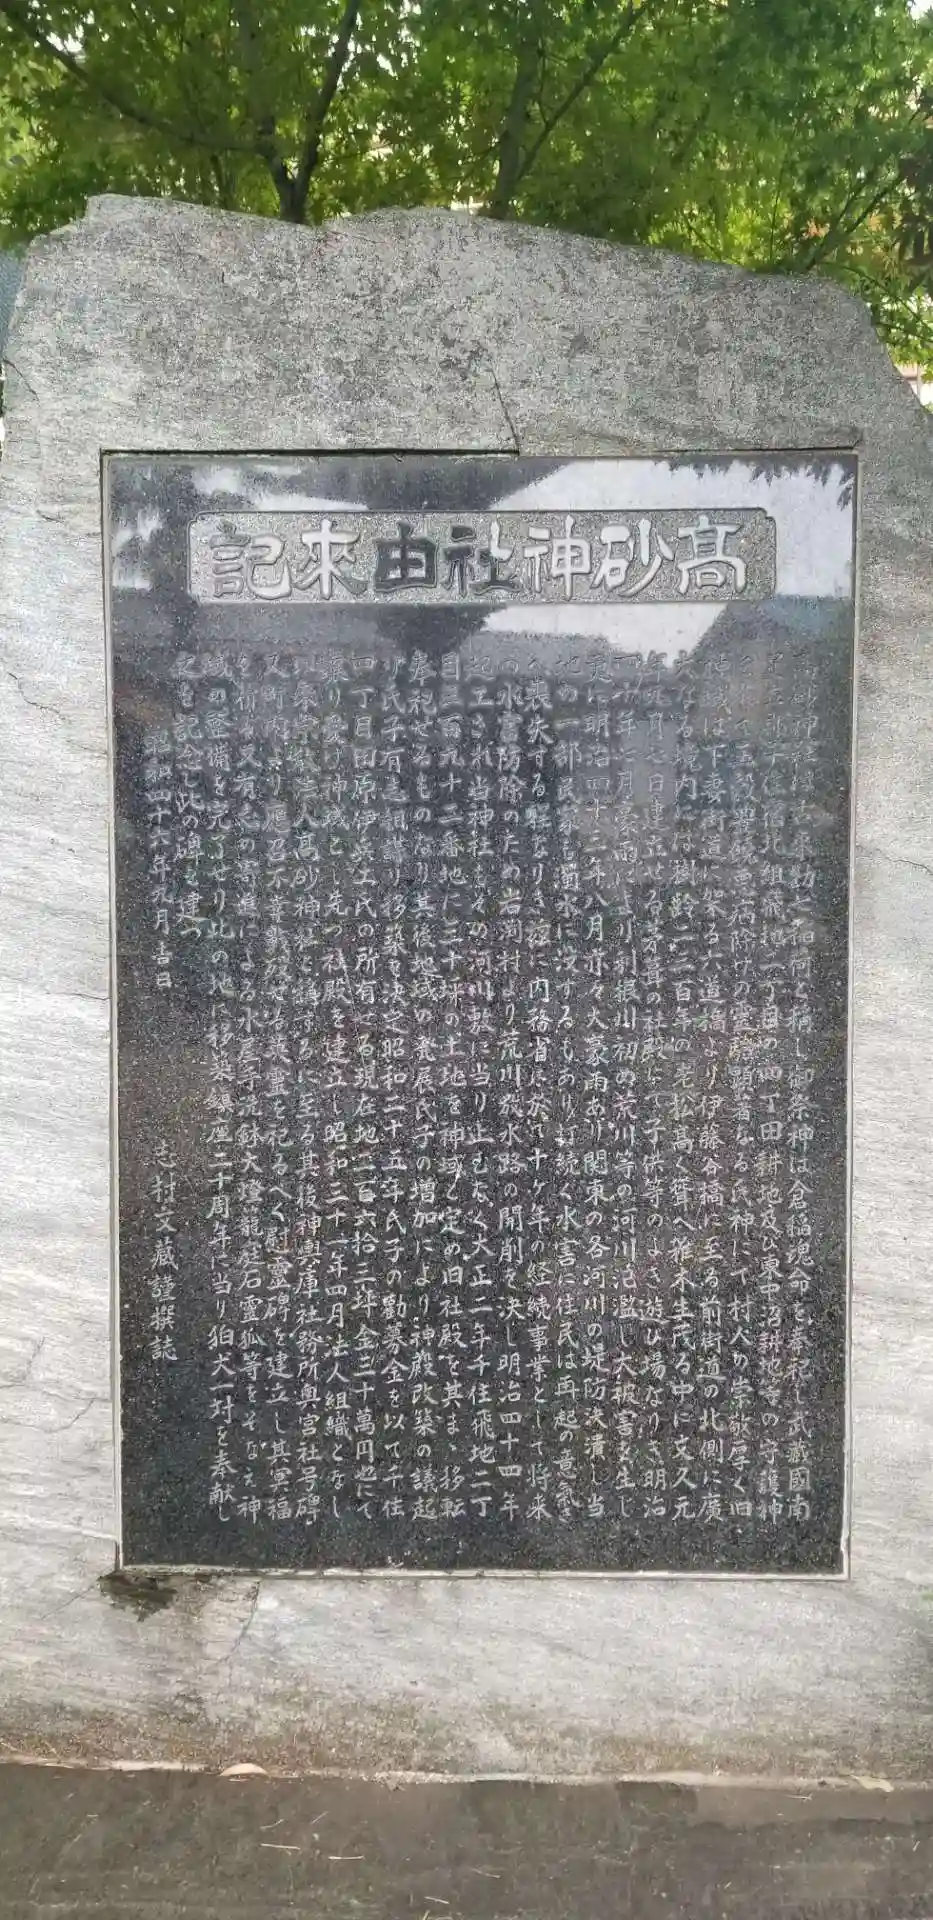 髙砂神社由来記
髙砂神社は古来幼と稲荷と称し御祭神は倉稲魂命を奉祀し武蔵國南
足立郡千住宿北組飛地二丁目四丁田耕地及び東中沼耕地等の守護神
五穀豊饒悪病除けの霊験顕著なる氏神にて村人の崇敬厚く旧
神域は下妻街道に架る六道橋より伊藤谷橋に至る前街道の北側に廣
大なる境内には樹齢二三百年の老松髙く聳へ雑木生茂る中に文久元
年九月七日建立せる茅葺の社殿にて子供等のよき遊び場なりき明治
四十年八月豪雨により利根川初め荒川等の河川氾濫し大被害を生じ
更に明治四十三年八月亦々大豪雨あり関東の各河川の堤防決潰し当
地の一部民家も濁水に没するもあり打続く水害に住民は再起の意氣さ
へ喪失する程なりき經に内務省に於て十ケ年の経続事業として将来
の水害防除のため岩渕村より荒川放水路の開削を決し明治四十四年
起工され当神社も其の河川敷に当り止むなく大正二年千住飛地二丁
目三百九十二番地に三十坪の土地を神域と定め旧社殿を其まゝ移転
奉祀せるものなり其後地域の発展氏子の増加により神殿改築の議起
り氏子有志相謀り移築を決定昭和二十五年氏子の勸募金を以て千住
四丁目田原伊兵エ氏の所有せる現在地二百六拾三坪金三十萬円也にて
譲り受け神域とし先づ社殿を建立し昭和三十一年四月法人組織となし
宗教法人髙砂神社と稱するに至る其後神輿庫社務所輿宮社号碑
又町内より應召不幸戰歿せる英霊を祀るへく慰霊碑を建立し其冥福
を祈る又有志の寄進による水屋手洗鉢大燈籠庭石霊狐等をそなえ神
域の整備を完了せり此の地に移築鎮座二十周年に当り狛犬一対を奉献し
之を記念し此の碑を建つ
昭和四十六年九月吉日
志村文蔵謹撰誌